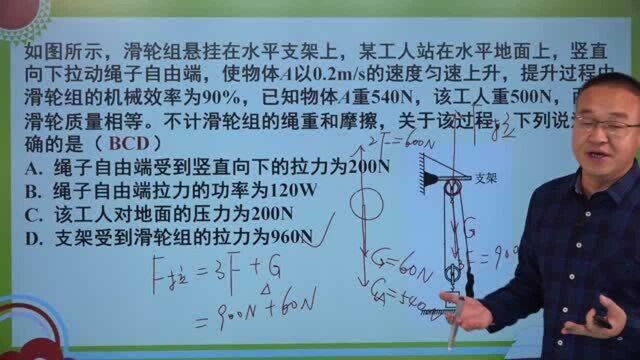 如图所示，滑轮组悬挂在水平支架上，某工人站在水平地面上，竖直
向下拉动绳子自由端，使物体A以0.2m/s的速度匀速上升，提升过程中
滑轮组的机械效率为90%，已知物体A重540N，该工人重500N，两
滑轮质量相等。不计滑轮组的绳重和摩擦，关于该过程，下列说法
确的是（BCD）
A. 绳子自由端受到竖直向下的拉力为200N
B. 绳子自由端拉力的功率为120W
C. 该工人对地面的压力为200N
D. 支架受到滑轮组的拉力为960N
2F=600N
F拉
支架
G
3F=900
G=60N
G_A=540N
F拉=3F+G
=900N+60N